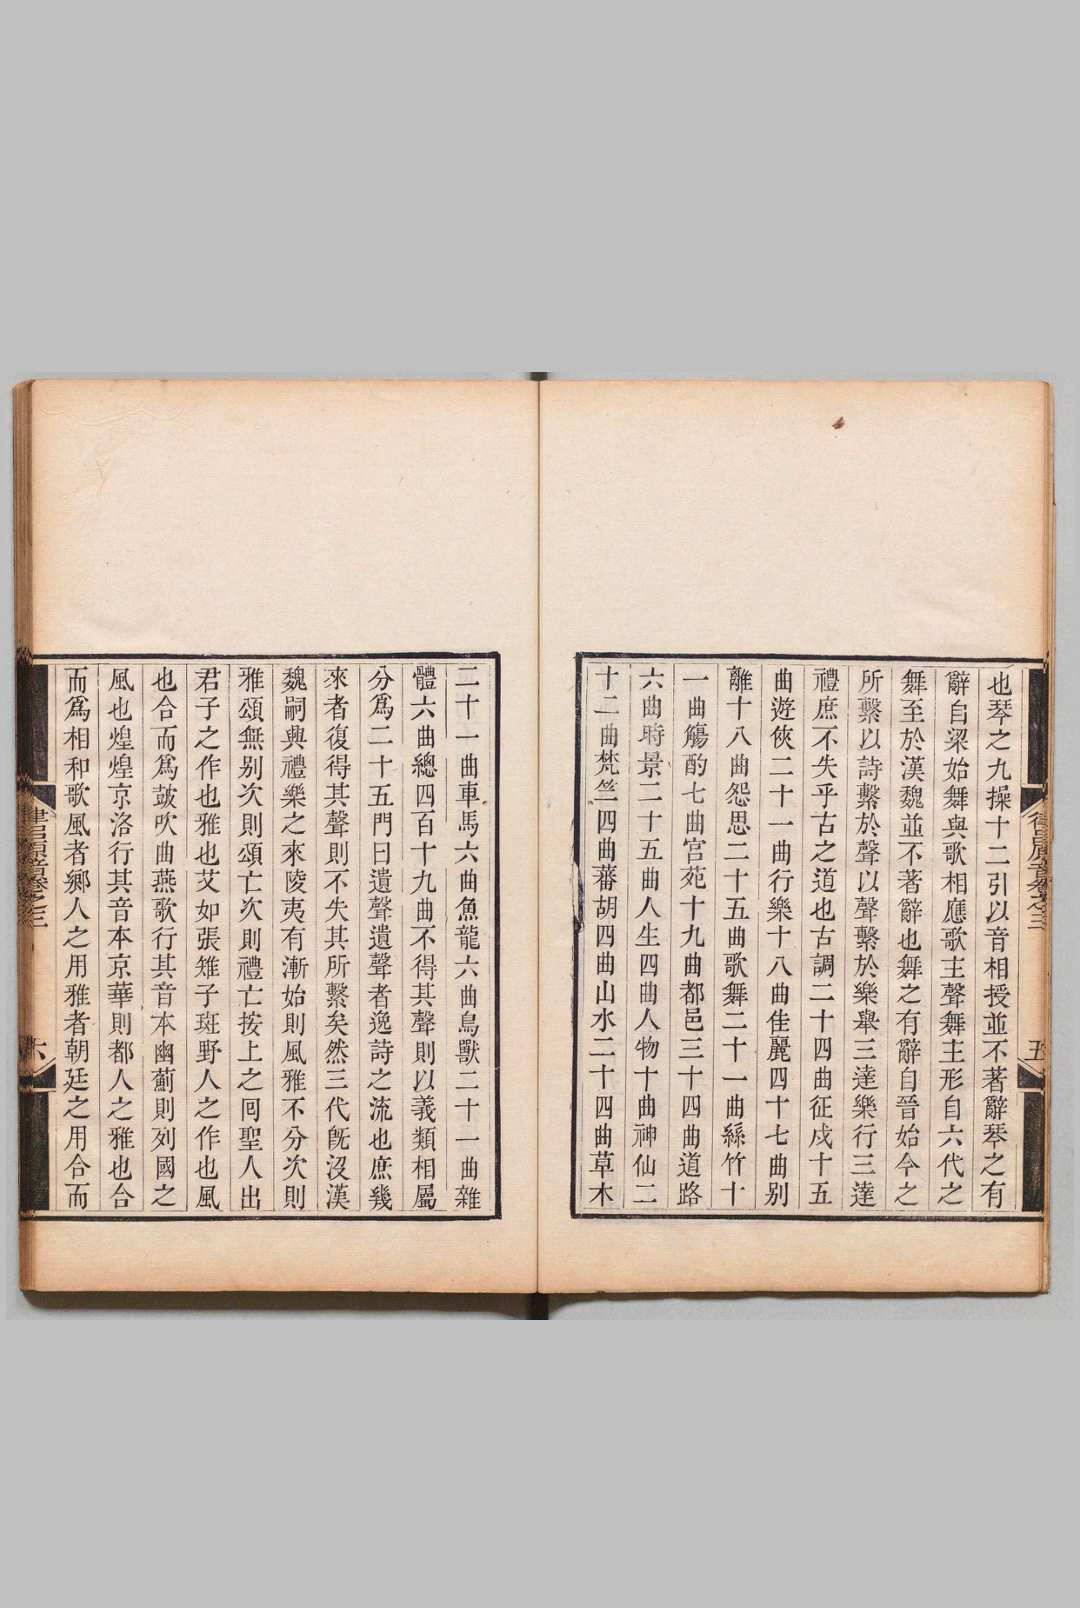 也琴之九操十二引以音相授並不著辭琴之有
辭自梁始舞與歌相應歌主聲舞主形自六代之
舞至於漢魏並不著辭也舞之有辭自晉始今之
所繫以詩繫於聲以聲繫於樂舉三達樂行三達
禮庶不失乎古之道也古調二十四曲征戍十五
曲遊俠二十一曲行樂十八曲佳麗四十七曲別
離十八曲怨思二十五曲歌舞二十一曲絲竹十
一曲觴酌七曲宮苑十九曲都邑三十四曲道路
六曲時景二十五曲人生四曲人物十曲神仙二
十二曲梵竺四曲蕃胡四曲山水二十四曲草木
律呂原音卷之三
五
二十一曲車馬六曲魚龍六曲鳥獸二十一曲雜
體六曲總四百十九曲不得其聲則以義類相屬
分爲二十五門曰遺聲遺聲者逸詩之流也庶幾
來者復得其聲則不失其所繫矣然三代旣沒漢
魏嗣興禮樂之來陵夷有漸始則風雅不分次則
雅頌無别次則頌亡次則禮亡按上之囘聖人出
君子之作也雅也艾如張雉子斑野人之作也風
也合而爲鼓吹曲燕歌行其音本幽薊則列國之
風也煌煌京洛行其音本京華則都人之雅也合
而爲相和歌風者鄉人之用雅者朝廷之用合而
律呂原音卷之三
六